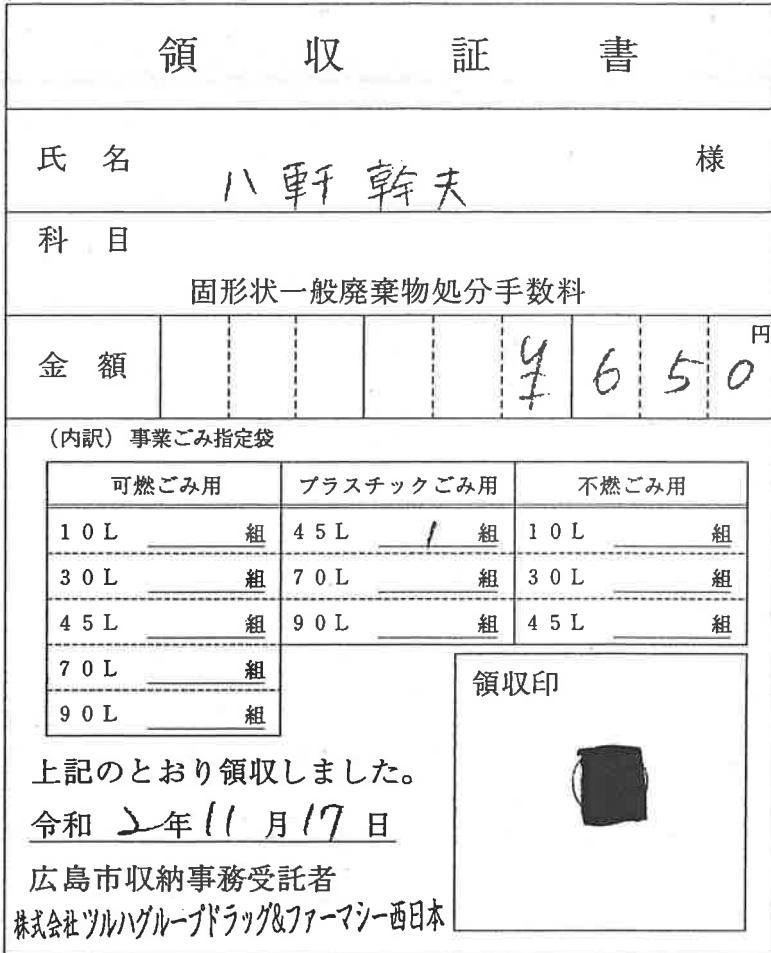 領収証書
氏名 八軒幹夫 様
科目
固形状一般廃棄物処分手数料
金額 ¥650円
(内訳) 事業ごみ指定袋
可燃ごみ用 プラスチックごみ用 不燃ごみ用
10L 組 45L 1 組 10L 組
30L 組 70L 組 30L 組
45L 組 90L 組 45L 組
70L 組
90L 組
領収印
上記のとおり領収しました。
令和 2年11月17日
広島市収納事務受託者
株式会社ツルハグループドラッグ&ファーマシー西日本